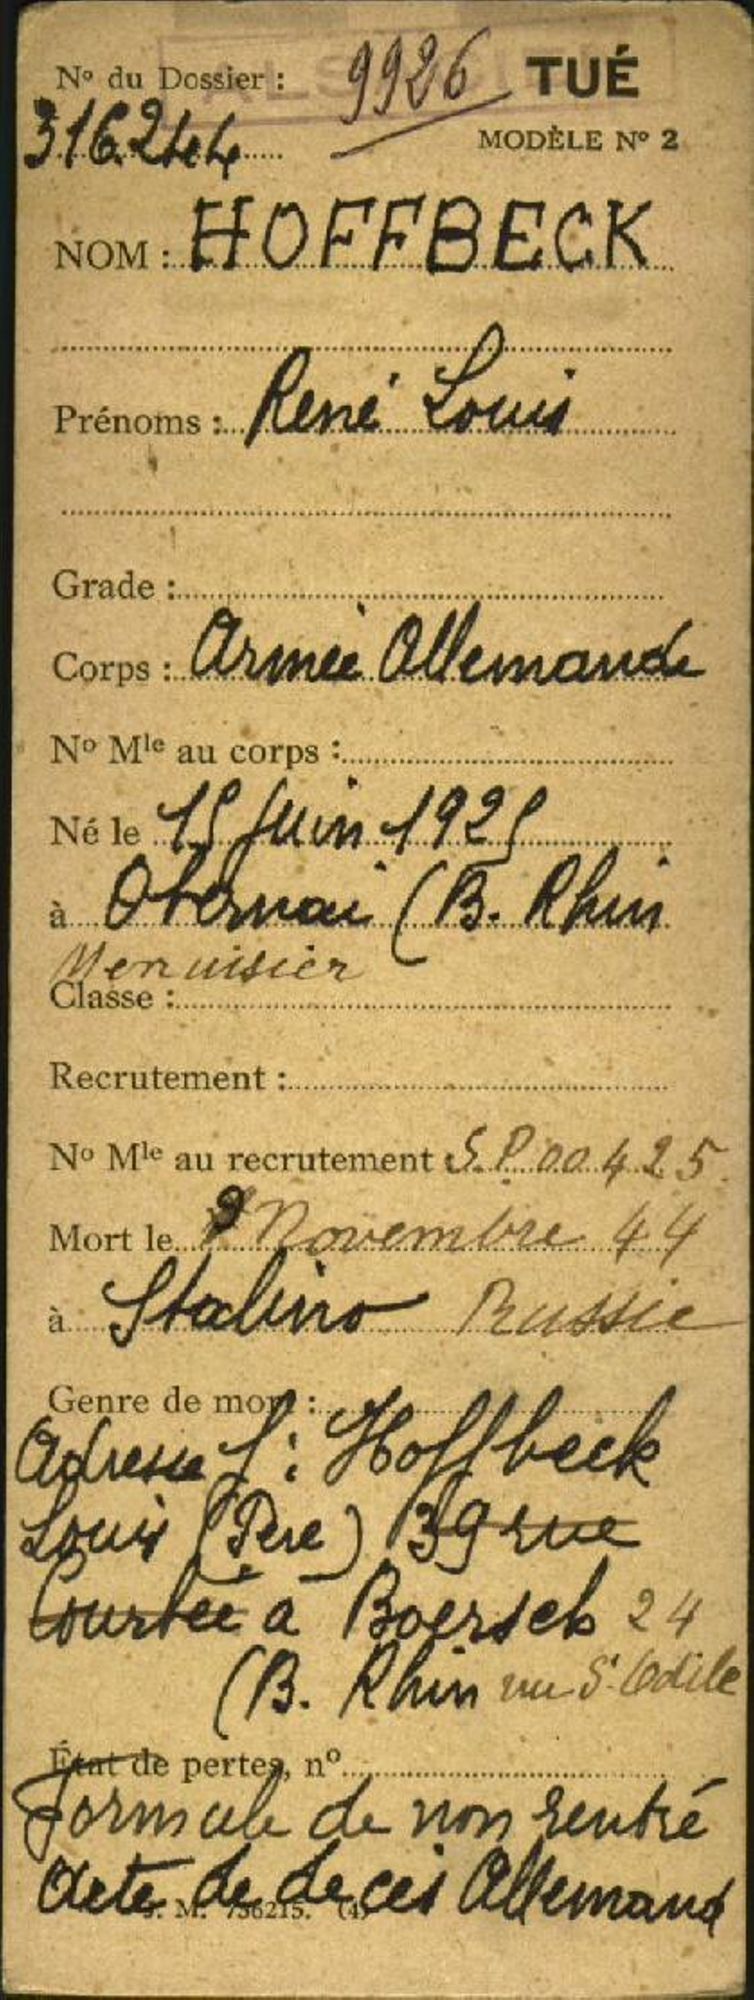 N° du Dossier : 9926 TUÉ
316244 MODÈLE N° 2
NOM : HOFFBECK
Prénoms : René Louis
Grade :
Corps : Armée Allemande
N° Mle au corps :
Né le 15 Juin 1925
à Obernai (B. Rhin
Menuisier
Classe :
Recrutement :
N° Mle au recrutement : S.P. 00425
Mort le 9 Novembre 44
à Stalino Russie
Genre de mort :
Adresse f : Hoffbeck
Louis (Père) 39 rue
Courbée à Boersch 24
(B. Rhin rue St Odile
État de pertes, n°
Formule de non rentré
Acte de décès Allemand
J. M. 736215. (4)